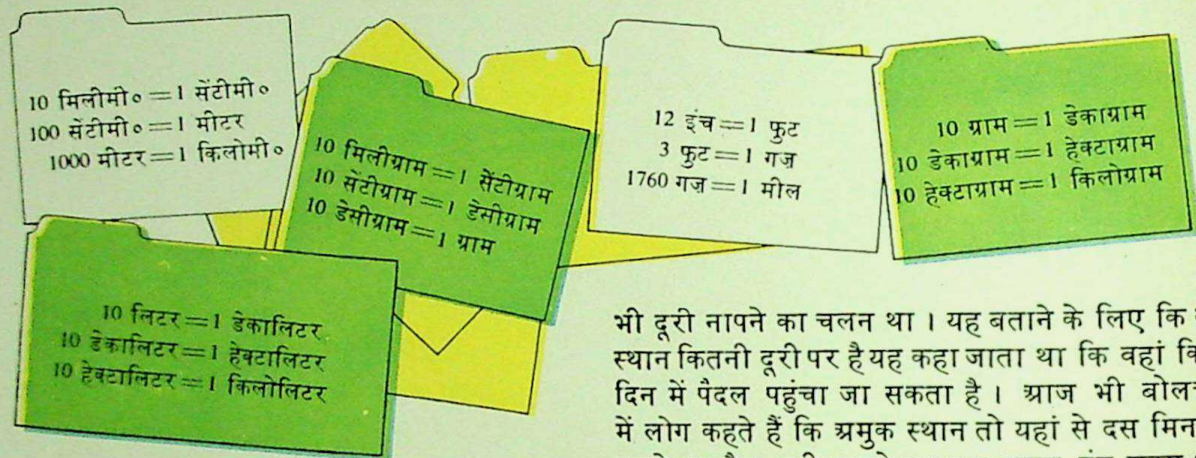 10 मिलीमी० = 1 सेंटीमी०
100 सेंटीमी० = 1 मीटर
1000 मीटर = 1 किलोमी०
10 मिलीग्राम = 1 सेंटीग्राम
10 सेंटीग्राम = 1 डेसीग्राम
10 डेसीग्राम = 1 ग्राम
12 इंच = 1 फुट
3 फुट = 1 गज़
1760 गज़ = 1 मील
10 ग्राम = 1 डेकाग्राम
10 डेकाग्राम = 1 हेक्टाग्राम
10 हेक्टाग्राम = 1 किलोग्राम
10 लिटर = 1 डेकालिटर
10 डेकालिटर = 1 हेक्टालिटर
10 हेक्टालिटर = 1 किलोलिटर
भी दूरी नापने का चलन था । यह बताने के लिए कि
स्थान कितनी दूरी पर है यह कहा जाता था कि वहां
दिन में पैदल पहुंचा जा सकता है । आज भी
में लोग कहते हैं कि अमुक स्थान तो यहां से दस